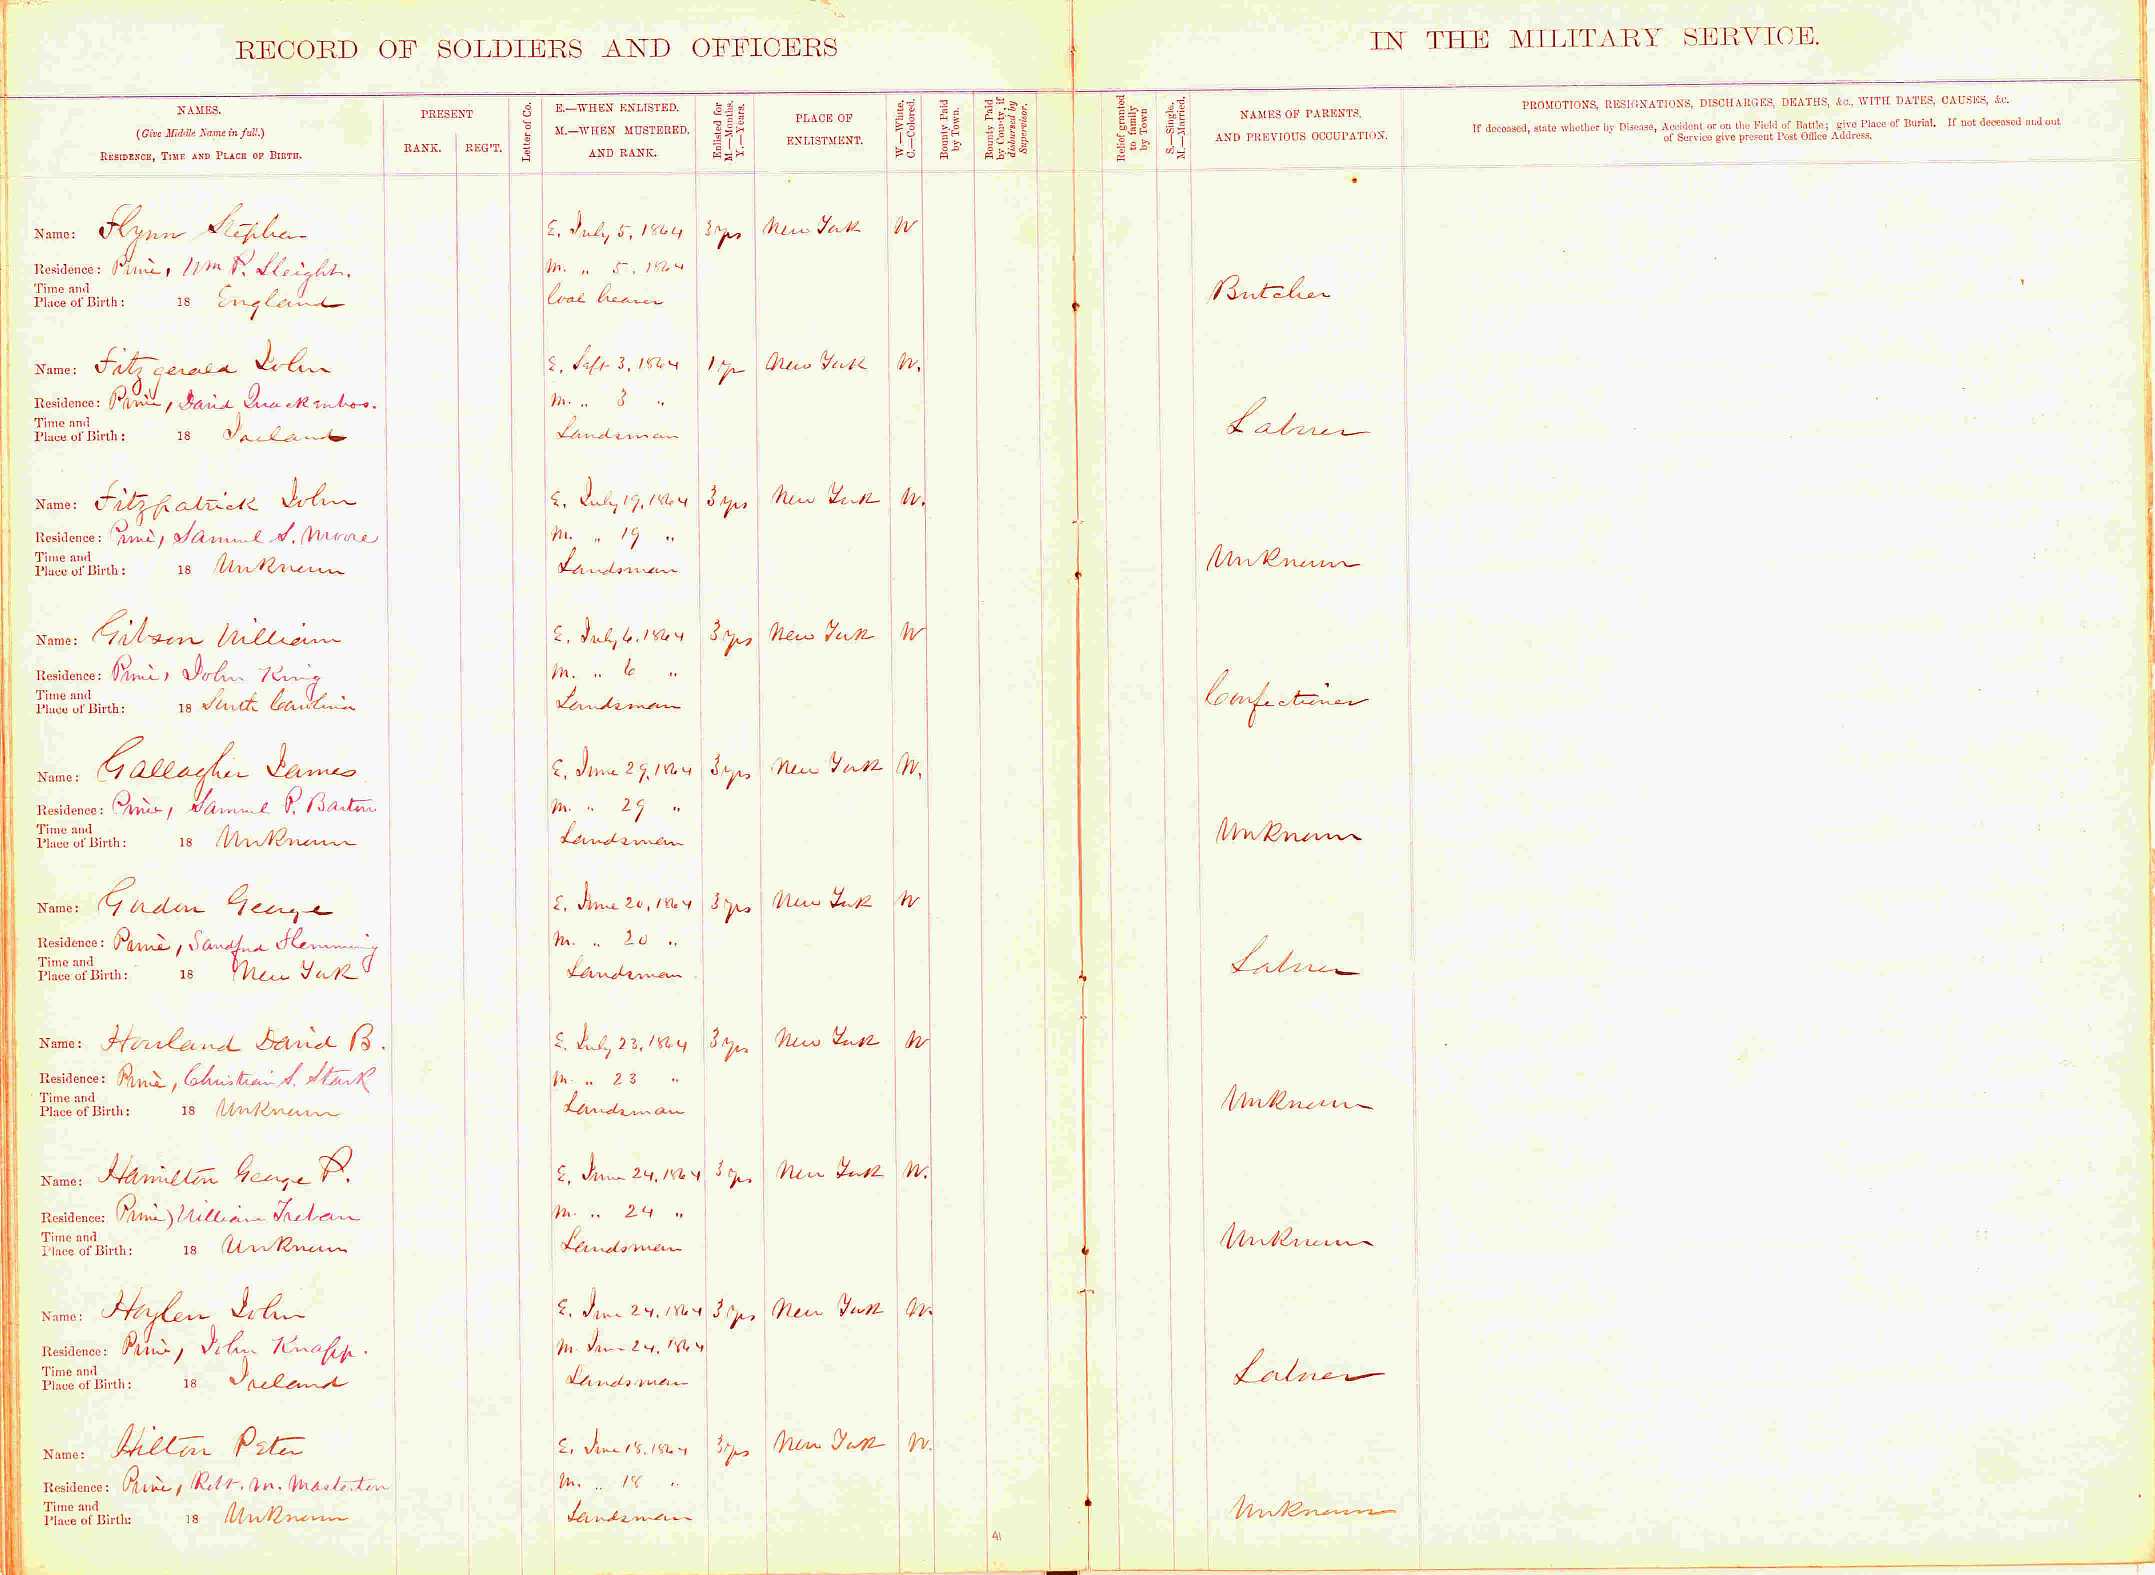 RECORD OF SOLDIERS AND OFFICERS IN THE MILITARY SERVICE.
NAMES.
(Give Middle Name in full.)
RESIDENCE, TIME AND PLACE OF BIRTH.
PRESENT
RANK. REG'T.
Letter of Co.
E.—WHEN ENLISTED.
M.—WHEN MUSTERED,
AND RANK.
Enlisted for
M.—Months.
Y.—Years.
PLACE OF
ENLISTMENT.
W.—White.
C.—Colored.
Bounty Paid
by Town.
Bounty Paid
by County, if
disbursed by
Supervisor.
Relief granted
to family
by Town
S.—Single.
M.—Married.
NAMES OF PARENTS,
AND PREVIOUS OCCUPATION.
PROMOTIONS, RESIGNATIONS, DISCHARGES, DEATHS, &c., WITH DATES, CAUSES, &c.
If deceased, state whether by Disease, Accident or on the Field of Battle; give Place of Burial. If not deceased and out
of Service give present Post Office Address.
Name: Flynn Stephen E. July 5, 1864 3 yrs New York W
Residence: Prin, Wm P. Sleight. M. " 5, 1864
Time and
Place of Birth: 18 England Coal heaver Butcher
Name: Fitzgerald John E. Sept 3, 1864 1 yr New York W.
Residence: Prin, David Quackenbos. M. " 3 "
Time and
Place of Birth: 18 Ireland Landsman Laborer
Name: Fitzpatrick John E. July 19, 1864 3 yrs New York W.
Residence: Prin, Samuel S. Moore M. " 19 "
Time and
Place of Birth: 18 Unknown Landsman Unknown
Name: Gibson William E. July 6, 1864 3 yrs New York W
Residence: Prin, John King M. " 6 "
Time and
Place of Birth: 18 South Carolina Landsman Confectioner
Name: Gallagher James E. June 29, 1864 3 yrs New York W.
Residence: Prin, Samuel P. Barton M. " 29 "
Time and
Place of Birth: 18 Unknown Landsman Unknown
Name: Gordon George E. June 20, 1864 3 yrs New York W
Residence: Prin, Sandford Hemming M. " 20 "
Time and
Place of Birth: 18 New York Landsman Laborer
Name: Howland David B. E. July 23, 1864 3 yrs New York W
Residence: Prin, Christian S. Stark M. " 23 "
Time and
Place of Birth: 18 Unknown Landsman Unknown
Name: Hamilton George P. E. June 24, 1864 3 yrs New York W.
Residence: Prin, William Treban M. " 24 "
Time and
Place of Birth: 18 Unknown Landsman Unknown
Name: Haylen John E. June 24, 1864 3 yrs New York W.
Residence: Prin, John Knapp. M. June 24, 1864
Time and
Place of Birth: 18 Ireland Landsman Laborer
Name: Hilton Peter E. June 18, 1864 3 yrs New York W.
Residence: Prin, Robt. M. Masterton M. " 18 "
Time and
Place of Birth: 18 Unknown Landsman Unknown
41